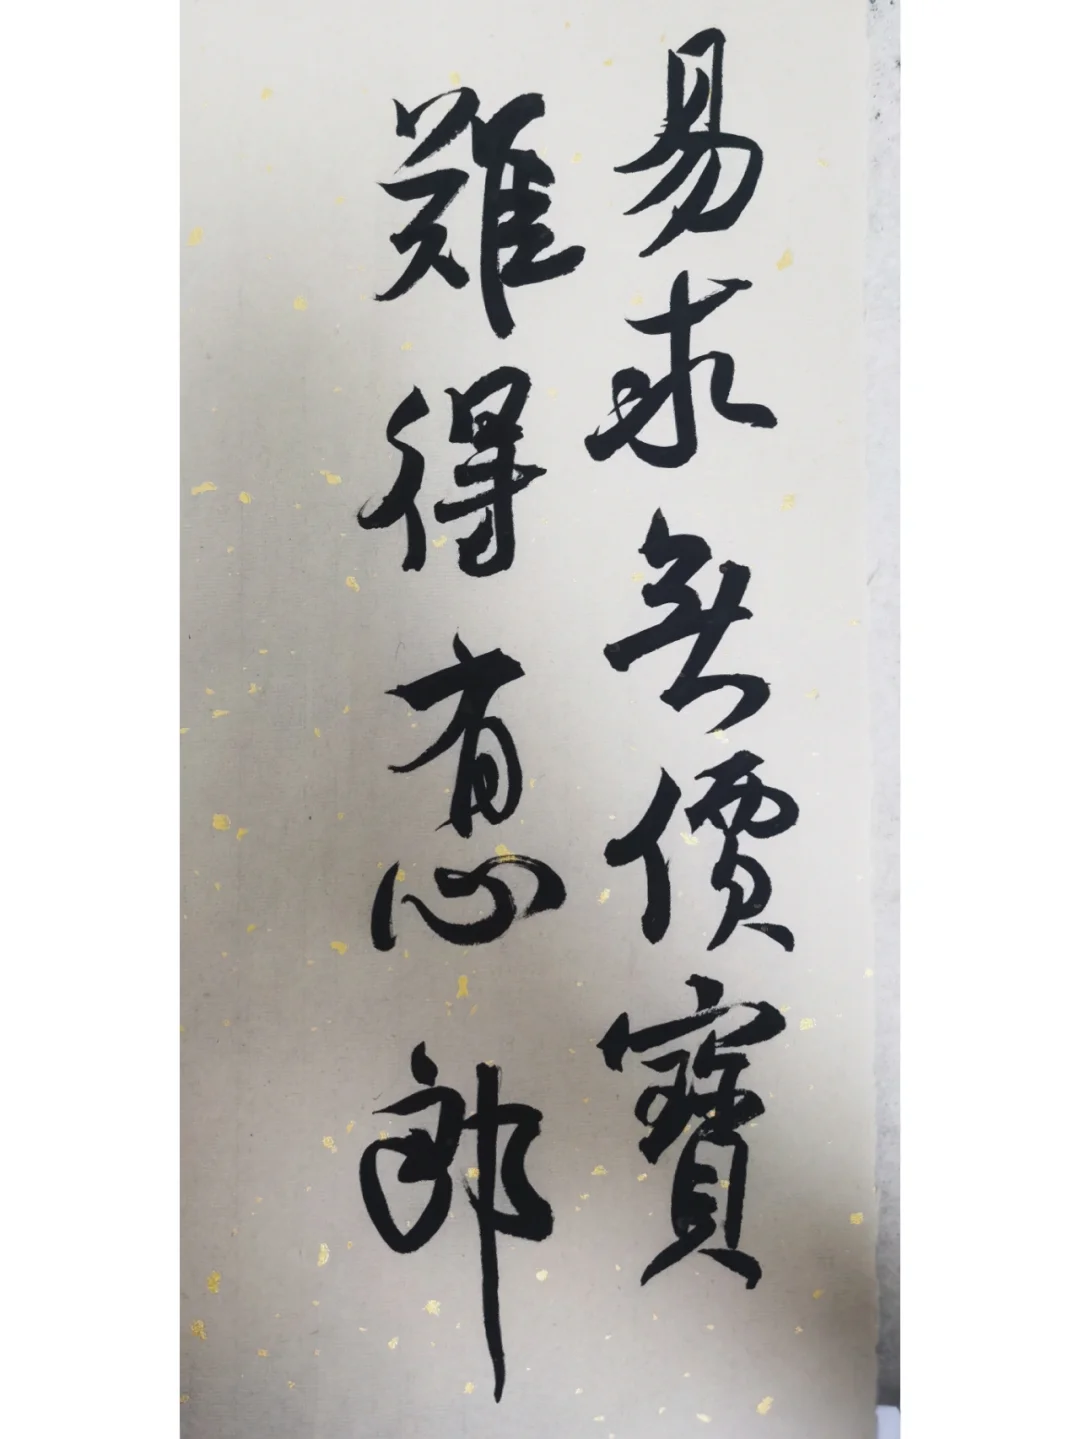 易求無價寶
難得有心郎